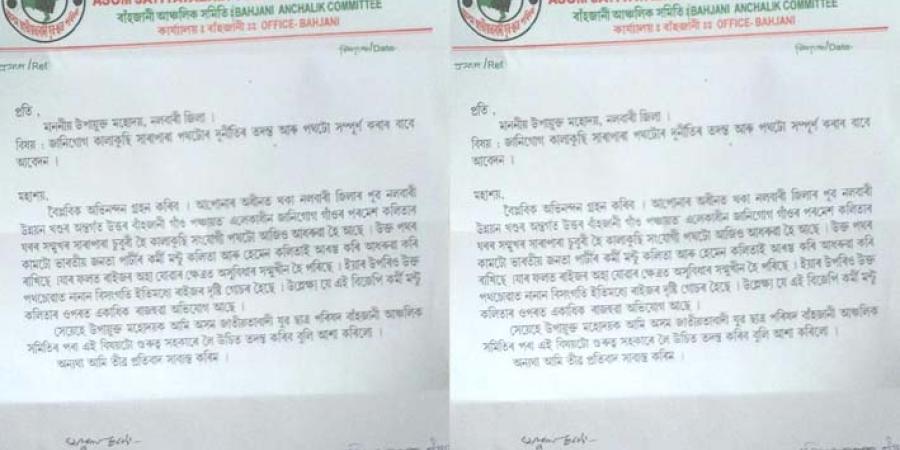 বাঁহজানী আঞ্চলিক সমিতি ঃঃ BAHJANI ANCHALIK COMMITTEE
কাৰ্য্যালয় ঃ বাঁহজানী ঃঃ OFFICE- BAHJANI
/Date
/Ref
প্ৰতি ,
মাননীয় উপায়ুক্ত মহোদয়, নলবাৰী জিলা ।
বিষয় : জানিগোগ কালাকুছি সাৰাপাৰা পথটোৰ দুৰ্নীতিৰ তদন্ত আৰু পথটো সম্পূৰ্ণ কৰাৰ বাবে
আবেদন ।
মহাশয়,
বৈপ্লৱিক অভিনন্দন গ্ৰহন কৰিব । আপোনাৰ অধীনত থকা নলবাৰী জিলাৰ পুব নলবাৰী
উন্নয়ন খণ্ডৰ অন্তৰ্গত উত্তৰ বাঁহজানী গাঁও পঞ্চায়ত এলেকাধীন জানিগোগ গাঁওৰ পৰমেশ কলিতাৰ
ঘৰৰ সন্মুখৰ সাৰাপাৰা চুবুৰী হৈ কালাকুছি সংযোগী পথটো আজিও আধৰুৱা হৈ আছে । উক্ত পথৰ
কামটো ভাৰতীয় জনতা পাৰ্টিৰ কৰ্মী মন্টু কলিতা আৰু হেমেন কলিতাই আৰম্ভ কৰি আধৰুৱা কৰি
ৰাখিছে ।যাৰ ফলত ৰাইজৰ অহা যোৱাৰ ক্ষেত্ৰত অসুবিধাৰ সন্মুখীন হৈ পৰিছে । ইয়াৰ উপৰিও উক্ত
পথচোৱাত নানান বিসংগতি ইতিমধ্যে ৰাইজৰ দৃষ্টি গোচৰ হৈছে । উল্লেখ্য যে এই বিজেপি কৰ্মী মন্টু
কলিতাৰ ওপৰত একাধিক ৰাজহুৱা অভিযোগ আছে ।
সেয়েহে উপায়ুক্ত মহোদয়ক আমি অসম জাতীয়তাবাদী যুব ছাত্ৰ পৰিষদ বাঁহজানী আঞ্চলিক
সমিতিৰ পৰা এই বিষয়টো গুৰুত্ব সহকাৰে লৈ উচিত তদন্ত কৰিব বুলি আশা কৰিলো ।
অন্যথা আমি তীব্ৰ প্ৰতিবাদ সাব্যস্ত কৰিম ।
বাঁহজানী আঞ্চলিক সমিতি ঃঃ BAHJANI ANCHALIK COMMITTEE
কাৰ্য্যালয় ঃ বাঁহজানী ঃঃ OFFICE- BAHJANI
/Date
/Ref
প্ৰতি ,
মাননীয় উপায়ুক্ত মহোদয়, নলবাৰী জিলা ।
বিষয় : জানিগোগ কালাকুছি সাৰাপাৰা পথটোৰ দুৰ্নীতিৰ তদন্ত আৰু পথটো সম্পূৰ্ণ কৰাৰ বাবে
আবেদন ।
মহাশয়,
বৈপ্লৱিক অভিনন্দন গ্ৰহন কৰিব । আপোনাৰ অধীনত থকা নলবাৰী জিলাৰ পুব নলবাৰী
উন্নয়ন খণ্ডৰ অন্তৰ্গত উত্তৰ বাঁহজানী গাঁও পঞ্চায়ত এলেকাধীন জানিগোগ গাঁওৰ পৰমেশ কলিতাৰ
ঘৰৰ সন্মুখৰ সাৰাপাৰা চুবুৰী হৈ কালাকুছি সংযোগী পথটো আজিও আধৰুৱা হৈ আছে । উক্ত পথৰ
কামটো ভাৰতীয় জনতা পাৰ্টিৰ কৰ্মী মন্টু কলিতা আৰু হেমেন কলিতাই আৰম্ভ কৰি আধৰুৱা কৰি
ৰাখিছে ।যাৰ ফলত ৰাইজৰ অহা যোৱাৰ ক্ষেত্ৰত অসুবিধাৰ সন্মুখীন হৈ পৰিছে । ইয়াৰ উপৰিও উক্ত
পথচোৱাত নানান বিসংগতি ইতিমধ্যে ৰাইজৰ দৃষ্টি গোচৰ হৈছে । উল্লেখ্য যে এই বিজেপি কৰ্মী মন্টু
কলিতাৰ ওপৰত একাধিক ৰাজহুৱা অভিযোগ আছে ।
সেয়েহে উপায়ুক্ত মহোদয়ক আমি অসম জাতীয়তাবাদী যুব ছাত্ৰ পৰিষদ বাঁহজানী আঞ্চলিক
সমিতিৰ পৰা এই বিষয়টো গুৰুত্ব সহকাৰে লৈ উচিত তদন্ত কৰিব বুলি আশা কৰিলো ।
অন্যথা আমি তীব্ৰ প্ৰতিবাদ সাব্যস্ত কৰিম ।